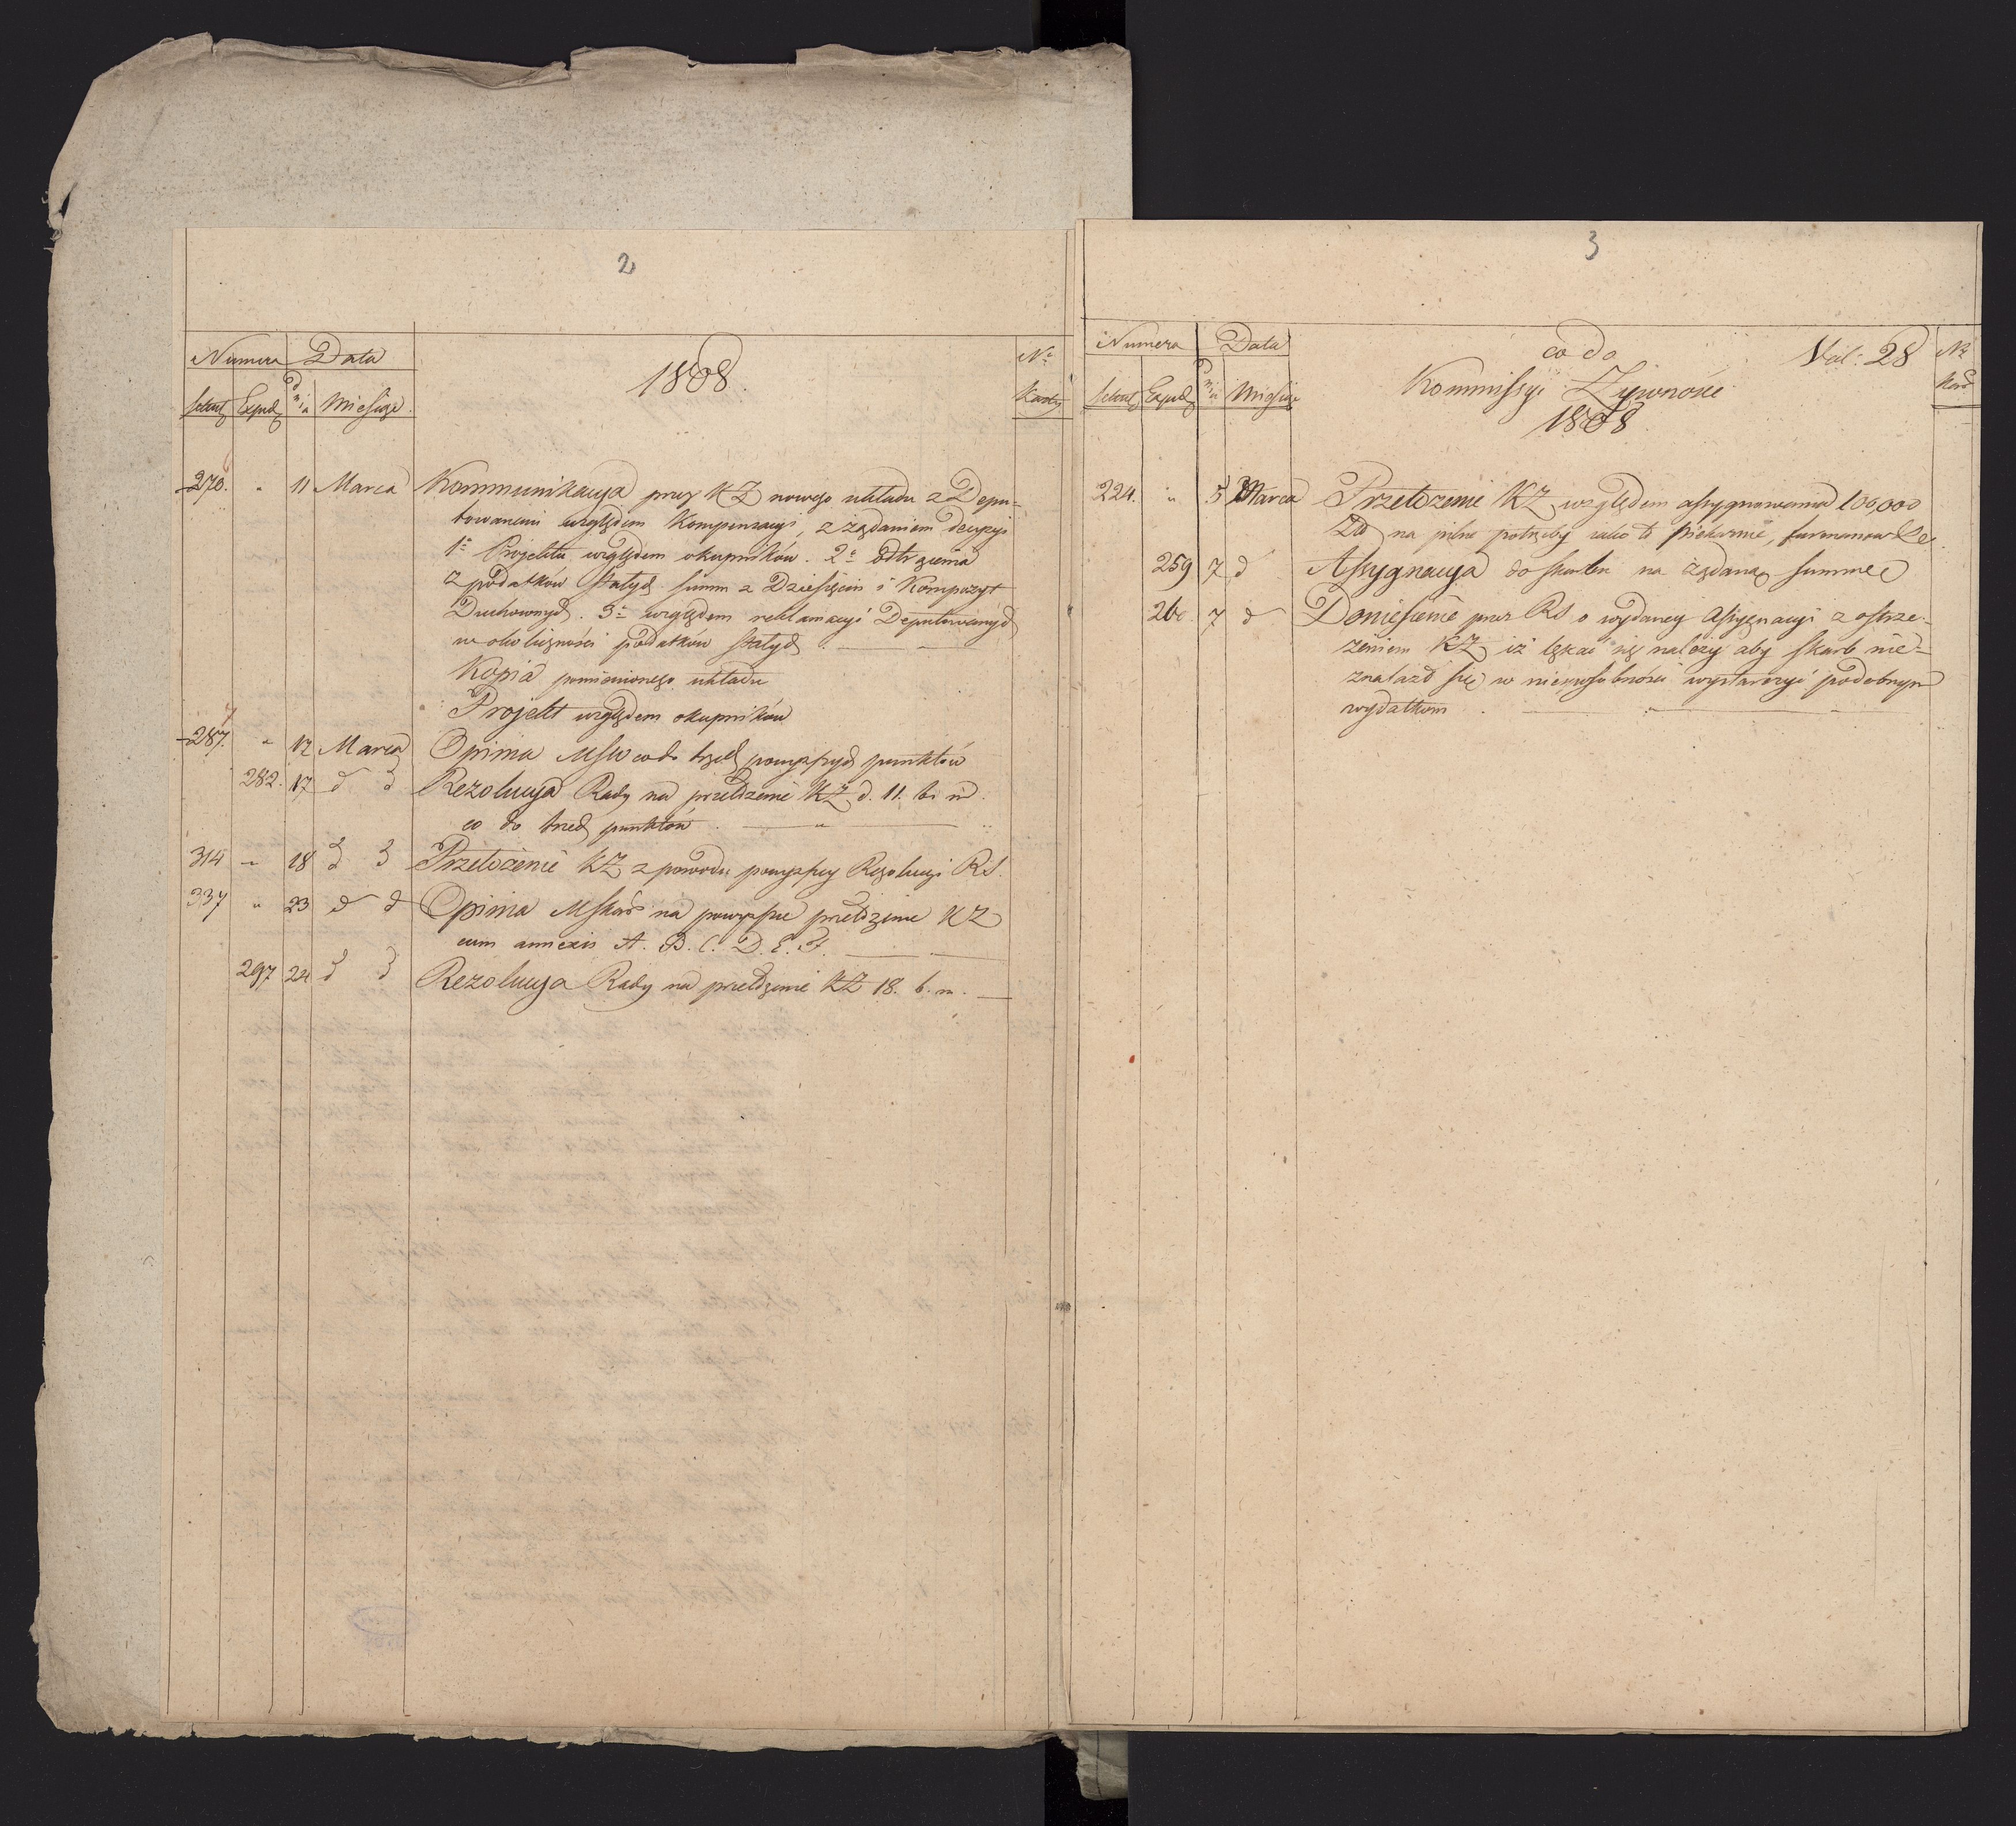 2
Numera Data
1808.
Nº
Expед dnia Miesiąc
Karty
270. " 11 Marca Kommunikacya przez KŻ nowego układu z Depu-
towanemi względem Kompensacyi, z żądaniem decyzyi
1º Projektu względem okupników. 2º odtrącenia
z podatków stałych summ z Dziesięcin i Kompozyt
Duchownych. 3º względem reklamacyi Deputowanych
w okoliczności podatków stałych
Kopia pomienionego układu
Projekt względem okupników
287. " 17 Marca Opinia MSW co do trzech powyższych punktów
282. 17 d d Rezolucya Rady na przełożenie KŻ d. 11. b. m.
co do trzech punktów
314 " 18 d d Przełożenie KŻ z powodu powyższey Rezolucyi RS.
337 " 23 d d Opinia MSkar na powyższe przełożenie KŻ
cum annexis A. B. C. D. E. F.
297 24 d d Rezolucya Rady na przełożenie KŻ 18. b. m.
3
Numera Data
co do
Vol: 28
Nº
Exped dnia Miesiąc
Kommissyi Żywności
Kart
1808
224. " 5 Marca Przełożenie KŻ względem assygnowania 100,000
Złł na pilne potrzeby iako to piekarnie, furmanow &c.
259 7 d Assygnacya do skarbu na żądaną summę
260. 7 d Doniesienie przez RS o wydaney assygnacyi z ostrze-
żeniem KŻ iż lękać się należy aby skarb nie-
znalazł się w niemożności wystarczyć podobnym
wydatkom